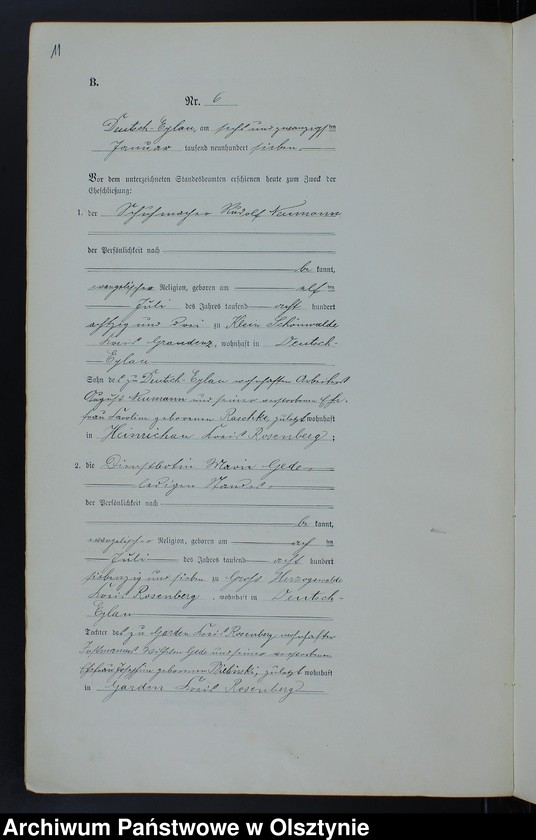 11
B.
Nr. 6
Deutsch-Eylau, am sechs und zwanzigsten
Januar tausend neunhundert sieben
Vor dem unterzeichneten Standesbeamten erschienen heute zum Zweck der
Eheschließung:
1. der Schuhmacher Rudolf Neumann
der Persönlichkeit nach
be kannt,
evangelischer Religion, geboren am elf ten
Juli des Jahres tausend acht hundert
achtzig und drei zu Klein Schönwalde
Kreis Graudenz, wohnhaft in Deutsch-
Eylau
Sohn des zu Deutsch-Eylau wohnhaften Arbeiters
August Neumann und seiner verstorbenen Ehe-
frau Karoline geborenen Raschke, zuletzt wohnhaft
in Heinrichau Kreis Rosenberg;
2. die Dienstbotin Marie Gede,
ledigen Standes
der Persönlichkeit nach
be kannt,
evangelischer Religion, geboren am ach ten
Juli des Jahres tausend acht hundert
siebenzig und sieben zu Groß Herzogswalde
Kreis Rosenberg, wohnhaft in Deutsch-
Eylau
Tochter des zu Garden Kreis Rosenberg wohnhaften
Wilhelm Gede und seiner verstorbenen
Ehefrau Josephine geborenen zuletzt wohnhaft
in Garden Kreis Rosenberg
Archiwum Państwowe w Olsztynie